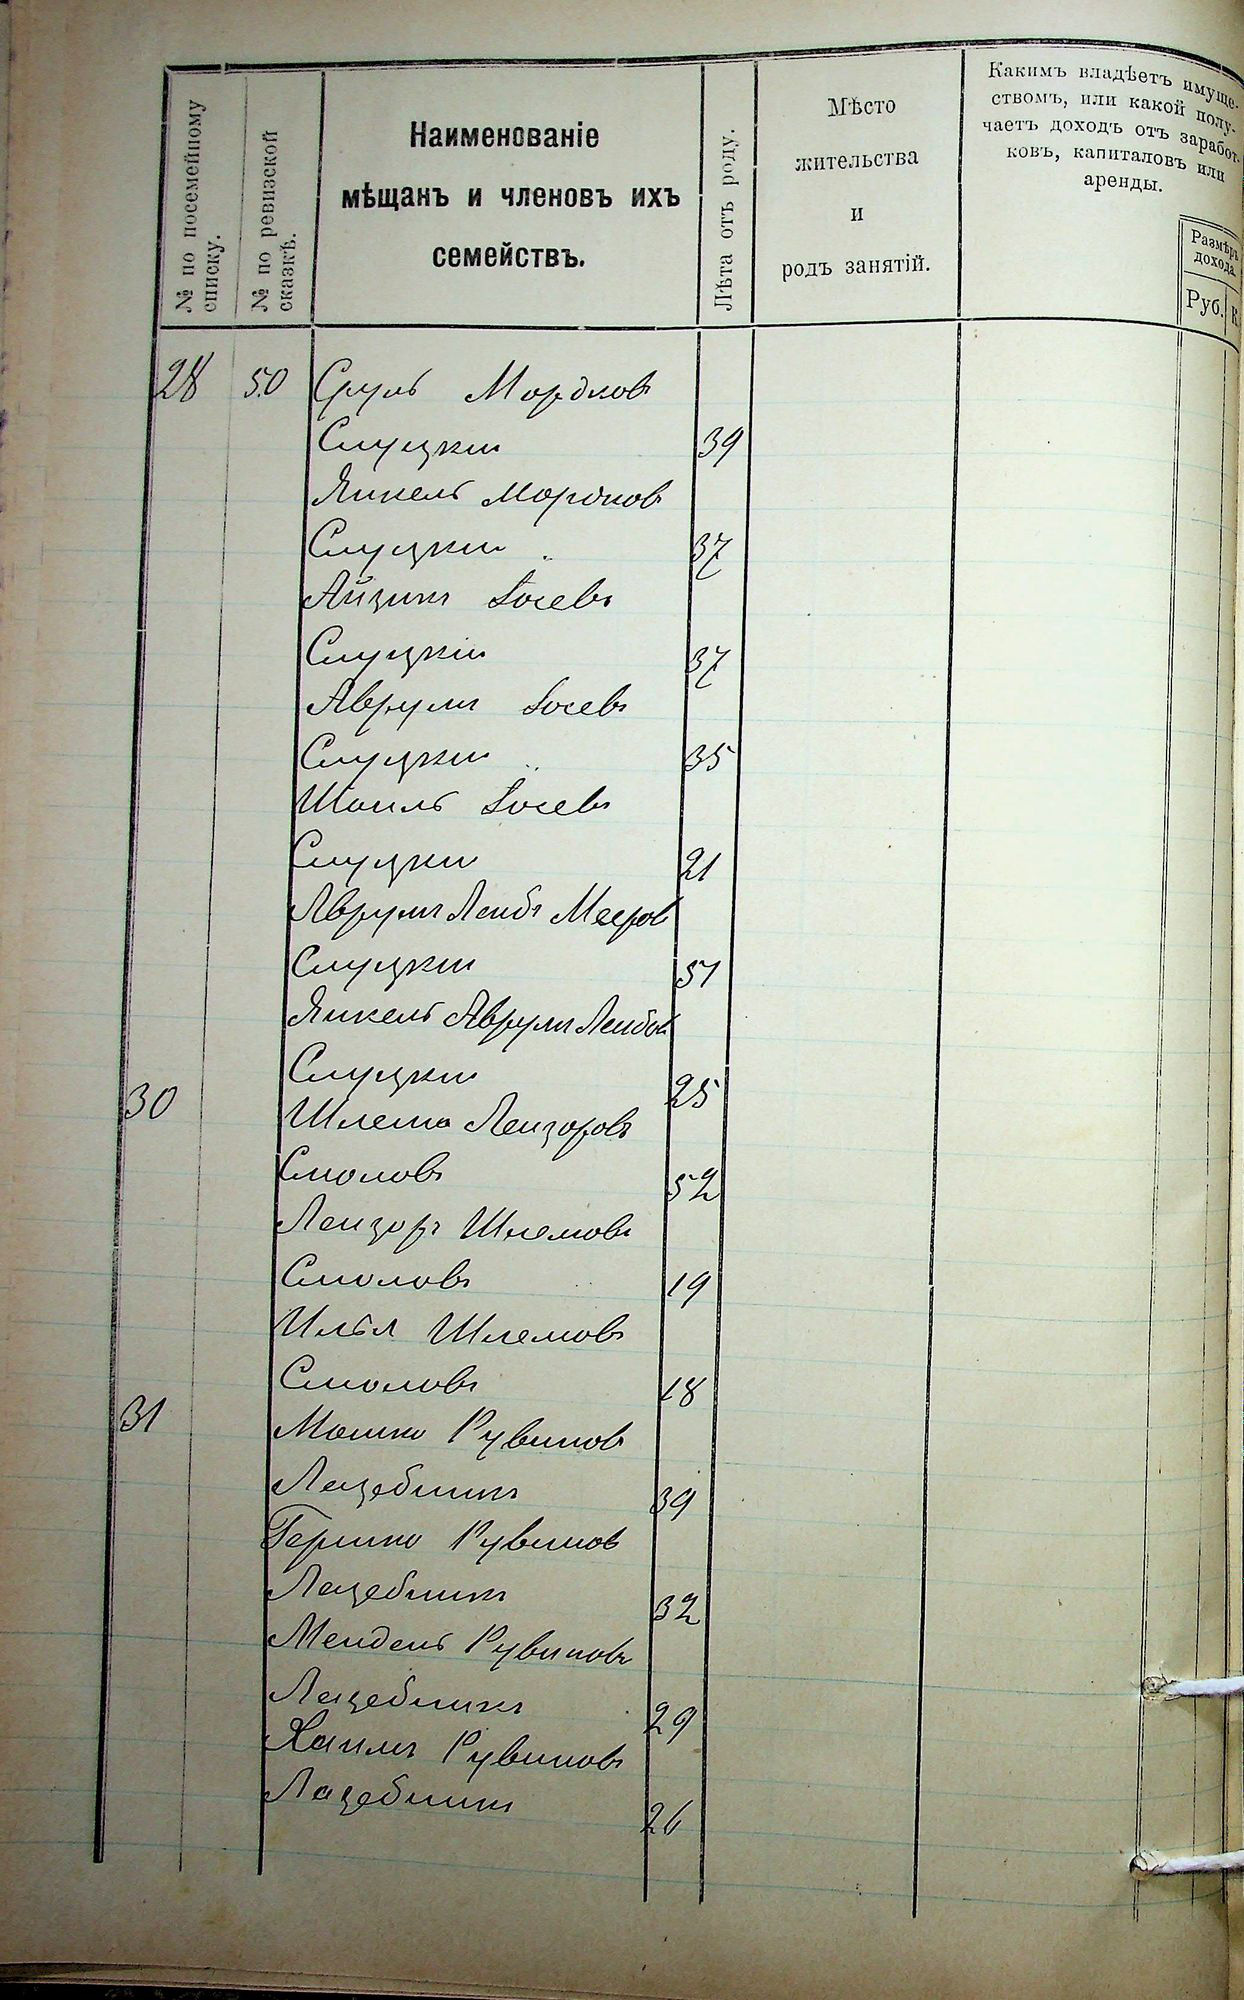 № по посемейному
списку.
№ по ревизской
сказкѣ.
Наименованіе
мѣщанъ и членовъ ихъ
семействъ.
Лѣта отъ роду.
Мѣсто
жительства
и
родъ занятій.
Какимъ владѣетъ имуще-
ствомъ, или какой полу-
чаетъ доходъ отъ заработ-
ковъ, капиталовъ или
аренды.
Размѣръ
дохода.
Руб. К.
28 50 Сруль Мордков
Слуцкій 39
Янкель Мордков
Слуцкій 37
Айзикъ Іосевъ
Слуцкій 37
Аврумъ Іосевъ
Слуцкій 35
Шоиль Іосевъ
Слуцкій 21
Аврумъ Лейбъ Мееров
Слуцкій 51
Янкель Аврумъ Лейбов
Слуцкій 25
30 Шлема Лейзоровъ
Смоловъ 52
Лейзоръ Шлемовъ
Смоловъ 19
Илья Шлемовъ
Смоловъ 18
31 Мошко Рувинов
Лазебникъ 39
Гершко Рувинов
Лазебникъ 32
Мендель Рувиновъ
Лазебникъ 29
Хаимъ Рувиновъ
Лазебникъ 26